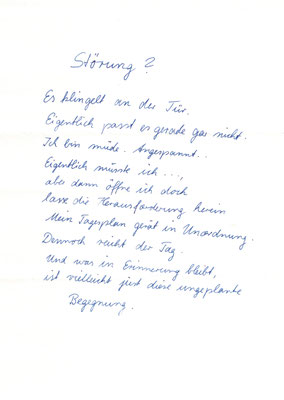 Störung?
Es klingelt an der Tür.
Eigentlich passt es gerade gar nicht.
Ich bin müde. Angespannt..
Eigentlich müsste ich ...,
aber dann öffne ich doch
lasse die Herausforderung herein
Mein Tagesplan gerät in Unordnung.
Dennoch reicht der Tag.
Und was in Erinnerung bleibt,
ist vielleicht just diese ungeplante
Begegnung.